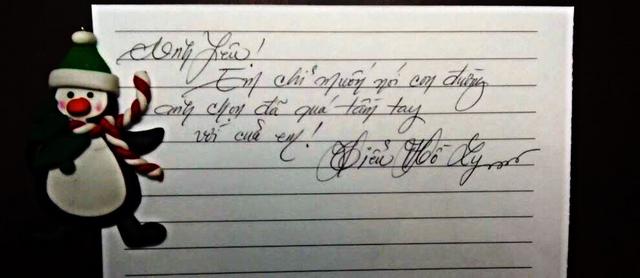 Anh Yêu!
Em chỉ muốn nói con đường
anh chọn đã quá tầm tay
với của em!
Diễu Võ Ly